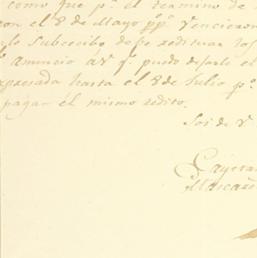 como que p.r el termino de
con el 8 de Mayo pp.o Vencieron
lo Subcecibo de se redituar los
anuncio a V. q.e puedo dejarle el
expresada hasta el 8 de Julio p.o
pagar el mismo redito.
Soi de V.
Cayeta